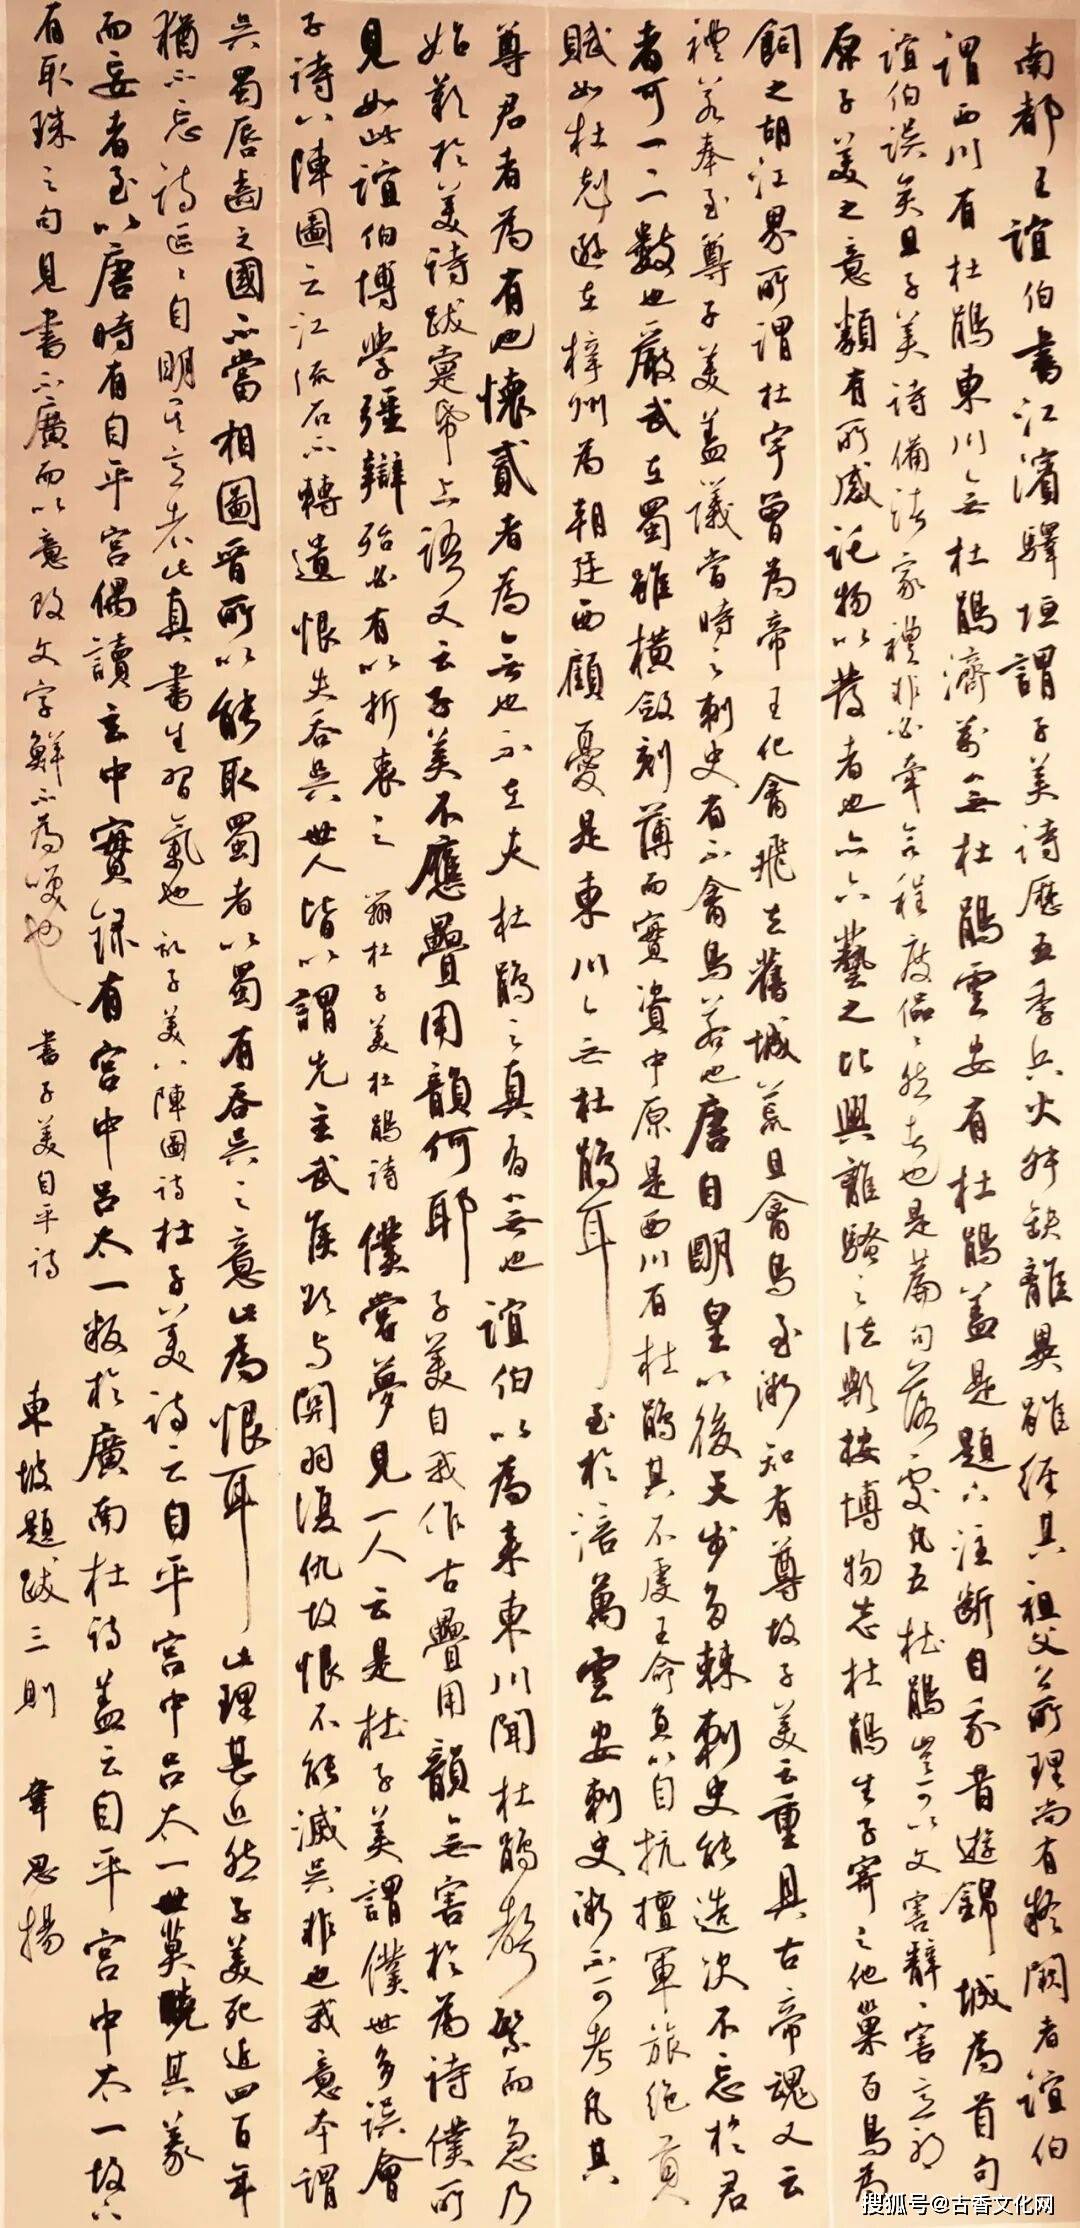 南都王誼伯書江濱驛垣謂子美詩歷五季兵火舛缺離異雖經其祖父公所理尚有疑闕者誼伯
謂西川有杜鵑東川無杜鵑涪萬無杜鵑雲安有杜鵑蓋是題下注斷自我昔遊錦城為首句
誼伯誤矣且子美詩備諸家禮非必牽合程度侃侃然者也是篇句落處凡五杜鵑豈可以文害辭辭害意耶
原子美之意類有所感託物以發者也亦六藝之比興離騷之法歟按博物志杜鵑生子寄之他巢百鳥為
飼之胡江界所謂杜宇曾為帝王化禽飛去舊城荒且禽鳥至微知有尊故子美云重是古帝魂又云
禮若奉至尊子美蓋譏當時之刺史有不禽鳥若也唐自明皇以後天步多棘刺史能造次不忘於君
者可一二數也嚴武在蜀雖橫斂刻薄而實資中原是西川有杜鵑其不虔王命負以自抗擅軍旅絕貢
賦如杜克遜在梓州為朝廷西顧憂是東川無杜鵑耳至於涪萬雲安刺史微不可考凡其
尊君者為有也懷貳者為無也不在夫杜鵑之真有無也誼伯以為來東川聞杜鵑聲繁而急乃
始歎於美詩跋疐紙上語又云子美不應疊用韻何耶子美自我作古疊用韻無害於為詩僕所
見如此誼伯博學强辯殆必有以折衷之 辨杜子美杜鵑詩 僕嘗夢見一人云是杜子美謂僕世多誤會
予詩八陣圖云江流石不轉遺恨失吞吳世人皆以謂先主武侯欲與關羽復仇故恨不能滅吳非也我意本謂
吳蜀唇齒之國不當相圖晉所以能取蜀者以蜀有吞吳之意此為恨耳此理甚近然子美死近四百年
猶不忘詩區區自明其意者此真書生習氣也 記子美八陣圖詩 杜子美詩云自平宮中呂太一世莫曉其義
而妄者至以唐時有自平宮偶讀玄中實錄有宮中呂太一叛於廣南杜詩蓋云自平宮中太一故下
有取珠之句見書不廣而以意改文字鮮不為笑也 書子美自平詩 東坡題跋三則 韋思揚
搜狐号@古香文化网